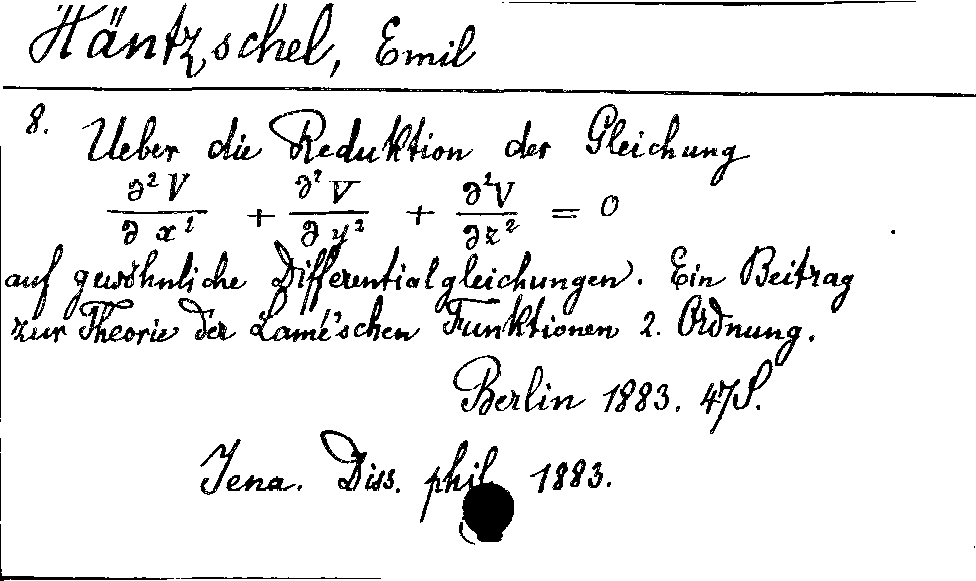 Häntzschel, Emil
8. Ueber die Reduktion der Gleichung
∂²V/∂x² + ∂²V/∂y² + ∂²V/∂z² = 0
auf gewöhnliche Differentialgleichungen. Ein Beitrag
zur Theorie der Lamé'schen Funktionen 2. Ordnung.
Berlin 1883. 47 S.
Jena. Diss. phil. 1883.